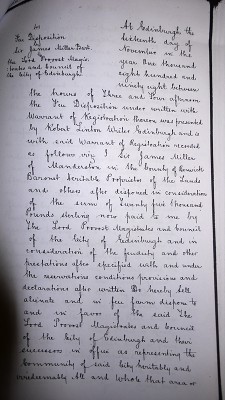 Feu Disposition
by
Sir James Miller Bart.
to
the Lord Provost Magis-
trates and Council of
the City of Edinburgh
At Edinburgh the
sixteenth day of
November in the
year One thousand
eight hundred and
ninety eight between
the hours of Three and Four afternoon
the Feu Disposition under written with
Warrant of Registration thereon was presented
by Robert Linton Writer Edinburgh and is
with said Warrant of Registration recorded
as follows viz I Sir James Miller
of Manderston in the County of Berwick
Baronet heritable Proprietor of the Lands
and others after disponed in consideration
of the sum of Twenty five thousand
Pounds sterling now paid to me by
The Lord Provost Magistrates and Council
of the City of Edinburgh and in
consideration of the feuduty and other
prestations after specified with and under
the reservations conditions provisions and
declarations after written Do hereby sell
alienate and in feu farm dispone to
and in favor of the said The
Lord Provost Magistrates and Council
of the City of Edinburgh and their
successors in office as representing the
Community of said City heritably and
irredeemably All and Whole that area or